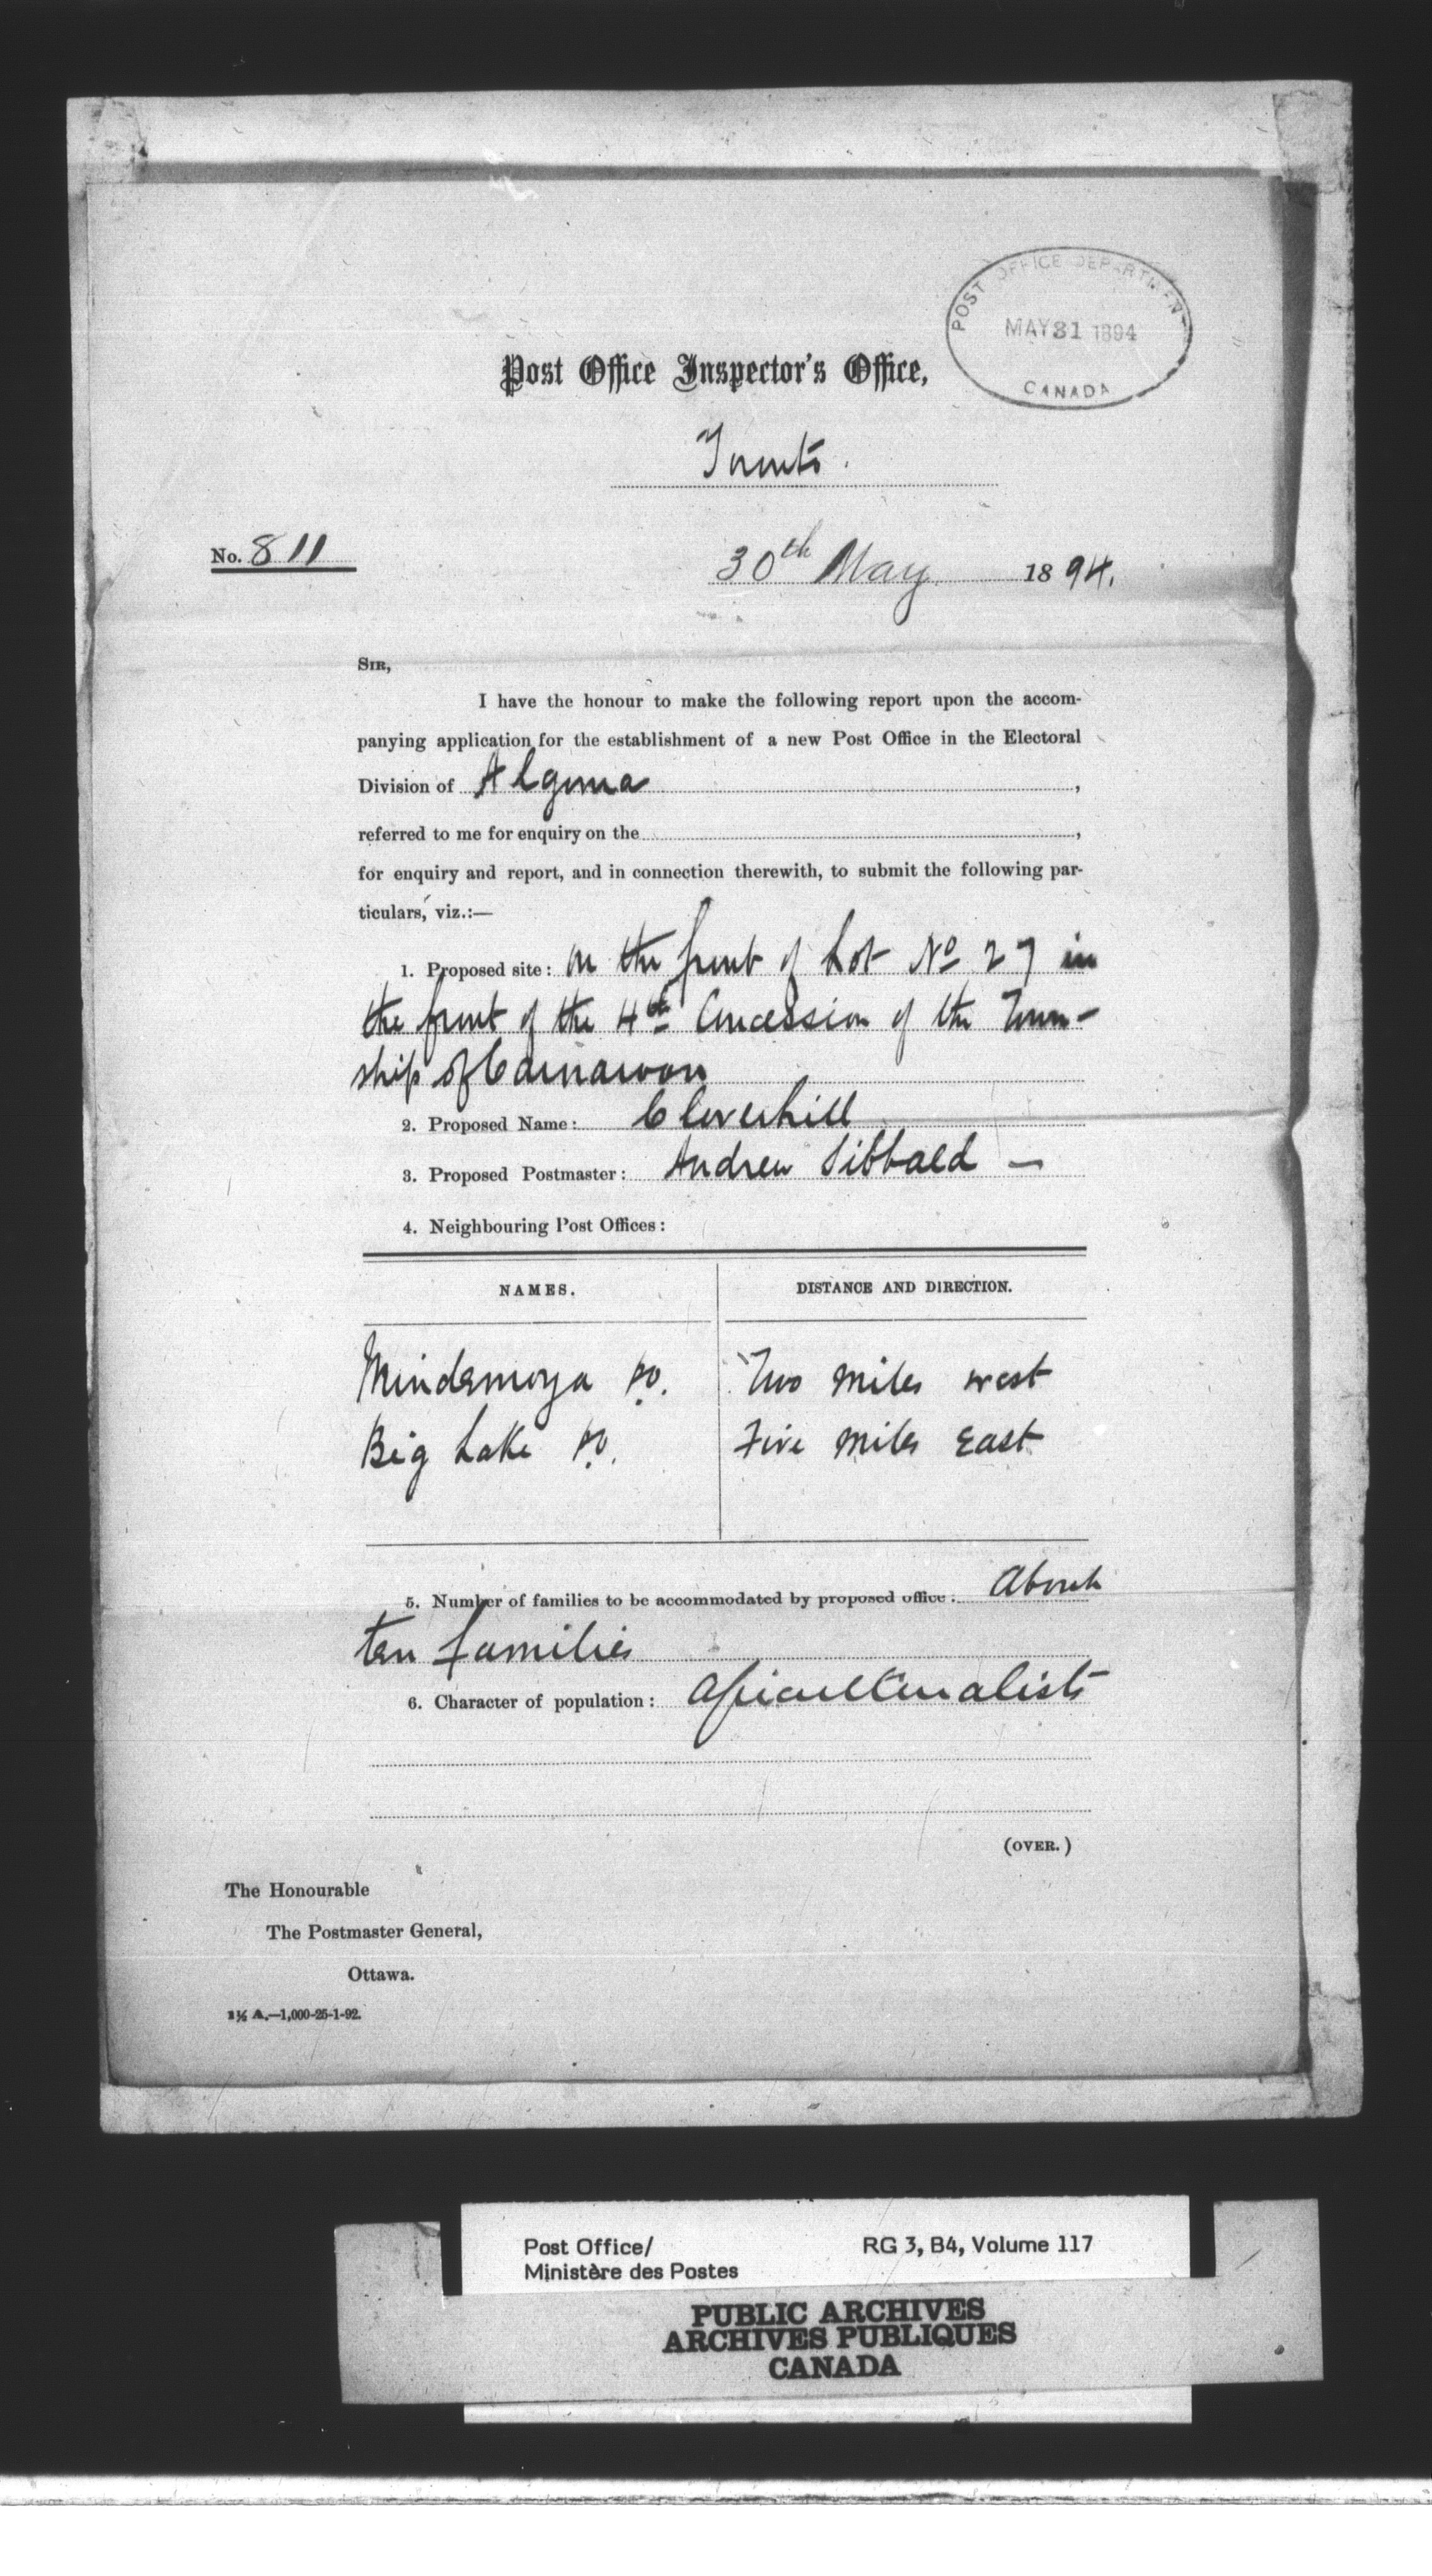 POST OFFICE DEPARTMENT
MAY 31 1894
CANADA
Post Office Inspector's Office,
Toronto.
No. 811
30th May 1894.
SIR,
I have the honour to make the following report upon the accom-
panying application for the establishment of a new Post Office in the Electoral
Division of Algoma,
referred to me for enquiry on the,
for enquiry and report, and in connection therewith, to submit the following par-
ticulars, viz.:—
1. Proposed site: on the front of Lot No 27 in
the front of the 4th Concession of the Town-
ship of Carnarvon
2. Proposed Name: Cloverhill
3. Proposed Postmaster: Andrew Sibbald —
4. Neighbouring Post Offices:
NAMES. DISTANCE AND DIRECTION.
Mindemoya P.O. Two miles west
Big Lake P.O. Five miles East
5. Number of families to be accommodated by proposed office: About
ten families
6. Character of population: Agriculturalists
(OVER.)
The Honourable
The Postmaster General,
Ottawa.
1½ A.—1,000-25-1-92.
Post Office/ RG 3, B4, Volume 117
Ministère des Postes
PUBLIC ARCHIVES
ARCHIVES PUBLIQUES
CANADA